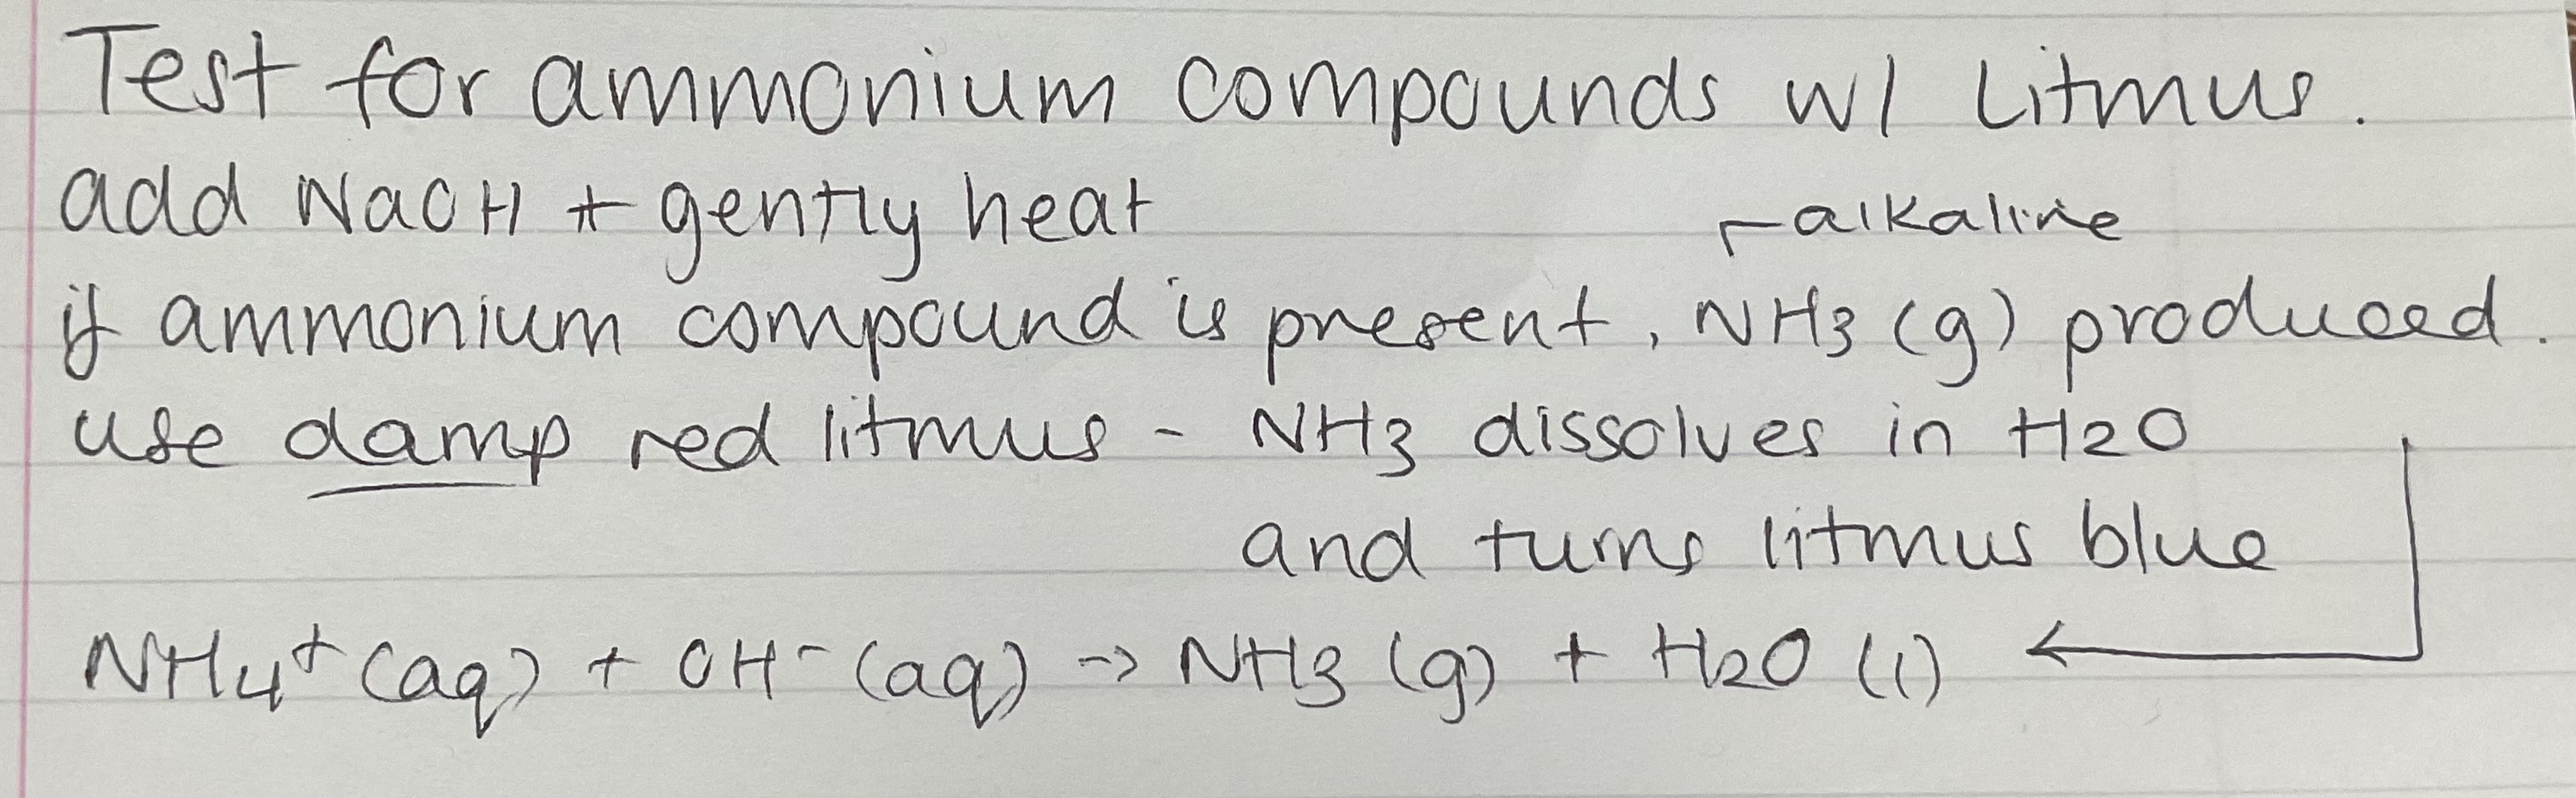 Test for ammonium compounds w/ Litmus.
add NaOH + gently heat
alkaline
if ammonium compound is present, NH3 (g) produced.
use damp red litmus - NH3 dissolves in H2O
and turns litmus blue
NH4+ (aq) + OH- (aq) → NH3 (g) + H2O (l) ←